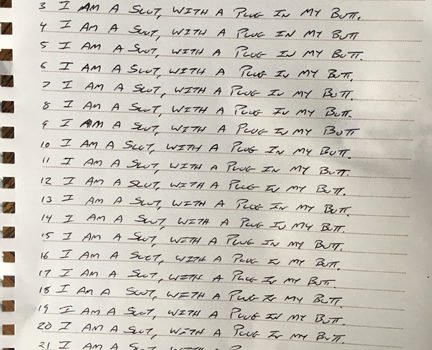 3 I AM A SLUT, WITH A PLUG IN MY BUTT.
4 I AM A SLUT, WITH A PLUG IN MY BUTT
5 I AM A SLUT, WITH A PLUG IN MY BUTT.
6 I AM A SLUT, WITH A PLUG IN MY BUTT.
7 I AM A SLUT, WITH A PLUG IN MY BUTT.
8 I AM A SLUT, WITH A PLUG IN MY BUTT.
9 I AM A SLUT, WITH A PLUG IN MY BUTT.
10 I AM A SLUT, WITH A PLUG IN MY BUTT.
11 I AM A SLUT, WITH A PLUG IN MY BUTT.
12 I AM A SLUT, WITH A PLUG IN MY BUTT.
13 I AM A SLUT, WITH A PLUG IN MY BUTT.
14 I AM A SLUT, WITH A PLUG IN MY BUTT.
15 I AM A SLUT, WITH A PLUG IN MY BUTT.
16 I AM A SLUT, WITH A PLUG IN MY BUTT.
17 I AM A SLUT, WITH A PLUG IN MY BUTT.
18 I AM A SLUT, WITH A PLUG IN MY BUTT.
19 I AM A SLUT, WITH A PLUG IN MY BUTT.
20 I AM A SLUT, WITH A PLUG IN MY BUTT.
21 I AM A SLUT, WITH A PLUG IN MY BUTT.